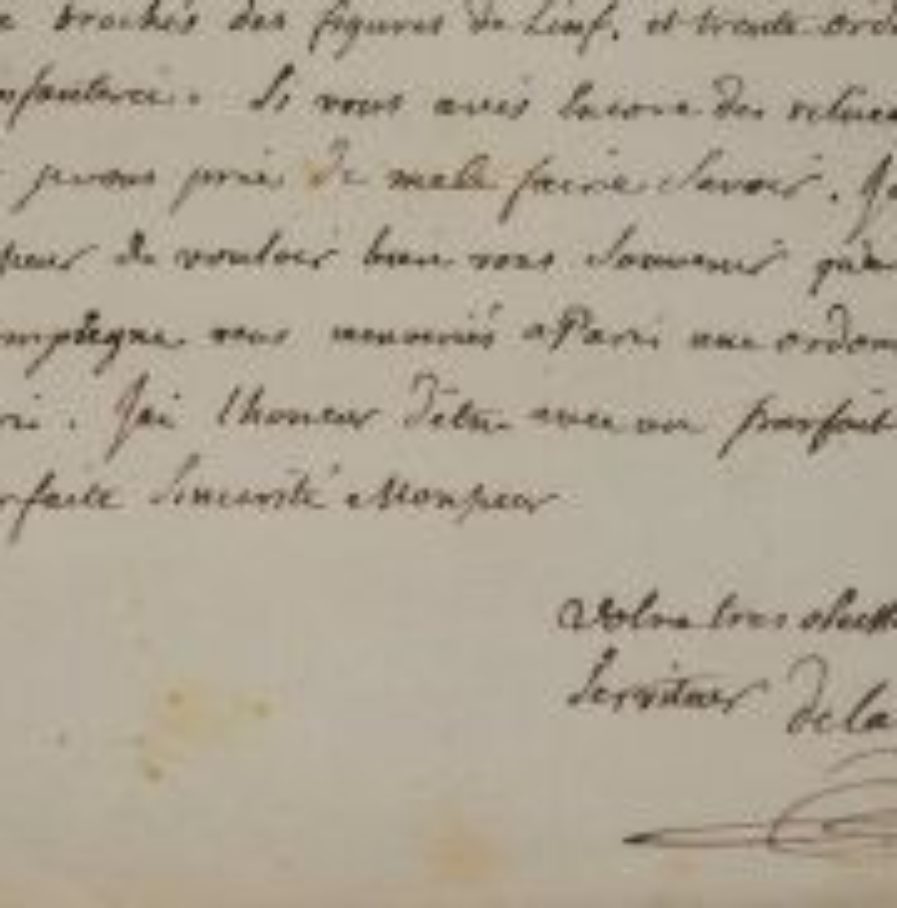 e brochés des figures de Linf. et trente ordo
nfanterie. Si vous aviés encore des
jevous prie de mele faire Savoir. Je
peur de vouloir bien vous Souvenir
ompiegne vous menvoiés a Paris une ordonn
. Jai lhoneur D'être avec un parfait
rfaite Sincerité Monsieur
Votre tres obeiss
Serviteur Dela